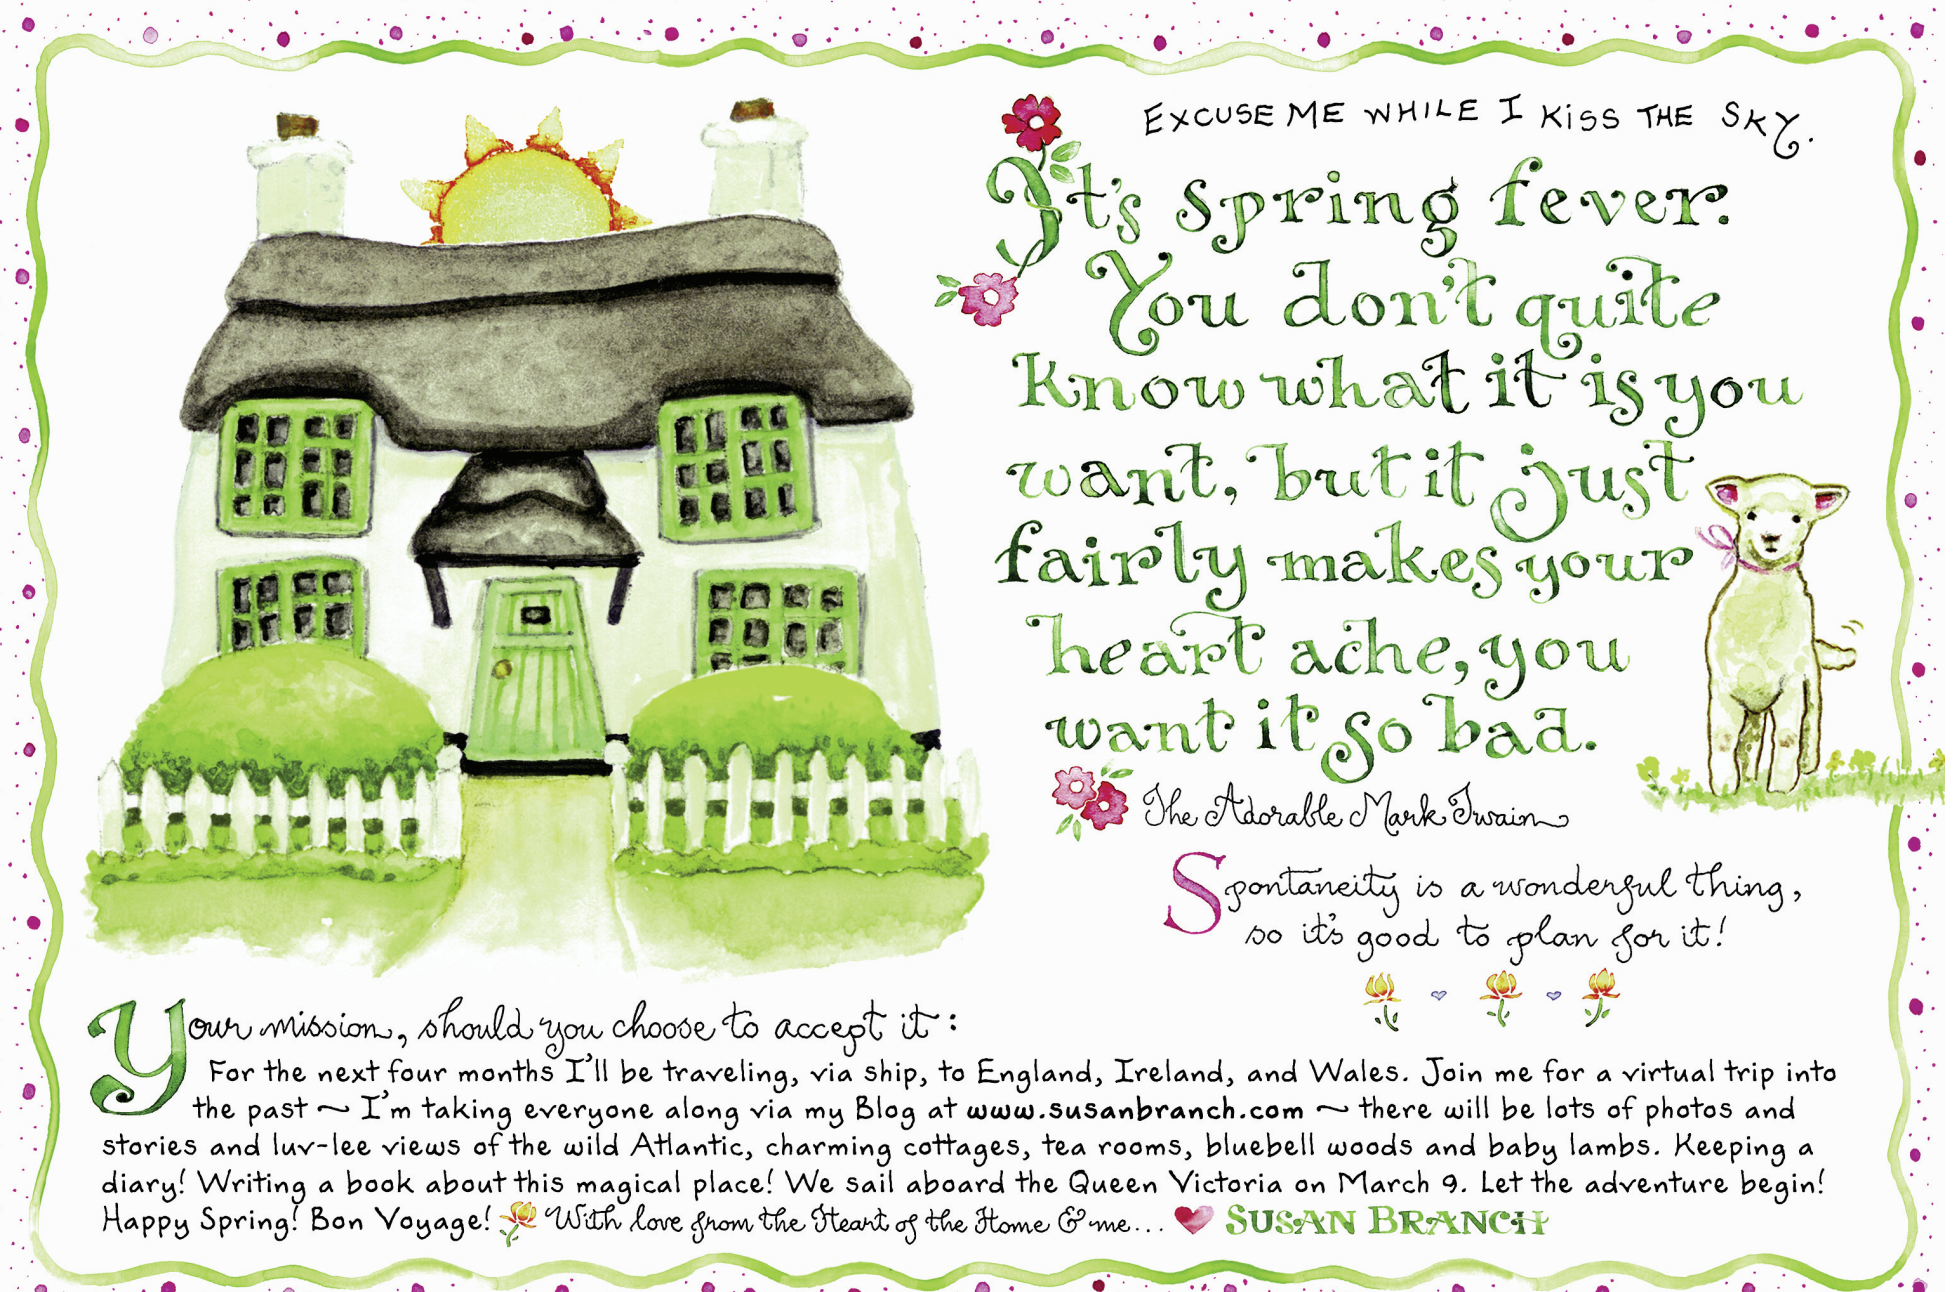 EXCUSE ME WHILE I KISS THE SKY.
It's spring fever.
You don't quite
know what it is you
want, but it just
fairly makes your
heart ache, you
want it so bad.
The Adorable Mark Twain
Spontaneity is a wonderful thing,
so it's good to plan for it!
Your mission, should you choose to accept it:
For the next four months I'll be traveling, via ship, to England, Ireland, and Wales. Join me for a virtual trip into
the past ~ I'm taking everyone along via my Blog at www.susanbranch.com ~ there will be lots of photos and
stories and luv-lee views of the wild Atlantic, charming cottages, tea rooms, bluebell woods and baby lambs. Keeping a
diary! Writing a book about this magical place! We sail aboard the Queen Victoria on March 9. Let the adventure begin!
Happy Spring! Bon Voyage! With love from the Heart of the Home & me... SUSAN BRANCH